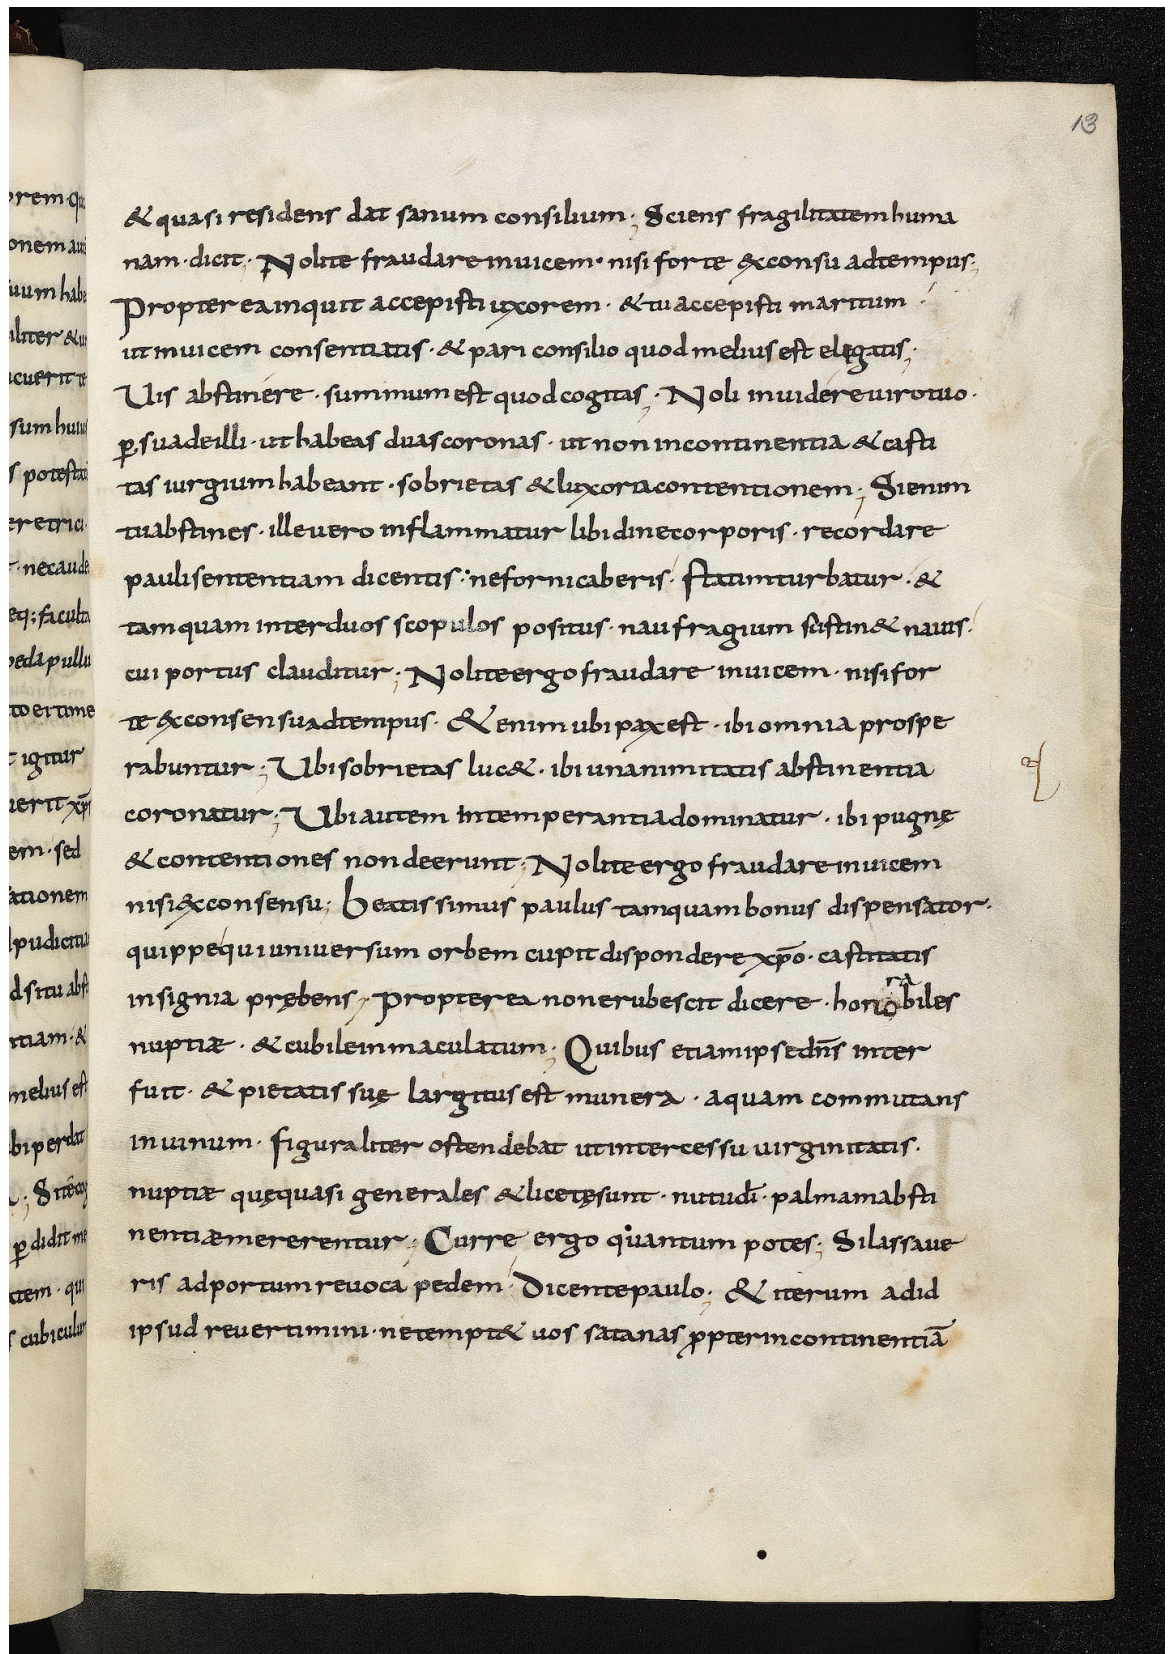 13
& quasi residens dat sanum consilium; Sciens fragilitatem huma
nam · dicit; Nolite fraudare inuicem · nisi forte exconsu adtempus;
Propterea inquit accepisti uxorem · & tu accepisti maritum ·
ut inuicem consentiatis · & pari consilio quod melius est elegatis;
Uis abstinere · summum est quod cogitas; Noli inuidere uiro tuo ·
p̱suade illi · ut habeas duas coronas · ut non incontinentia & casti
tas iurgium habeant · sobrietas & luxoria contentionem; Si enim
tu abstines · ille uero inflammatur libidine corporis · recordare
pauli sententiam dicentis · ne fornicaberis · statim turbatur · &
tamquam inter duos scopulos positus · naufragium sustin& nauis ·
cui portus clauditur; Nolite ergo fraudare inuicem · nisi for
te ex consensu ad tempus · & enim ubi pax est · ibi omnia prospe
rabuntur; Ubi sobrietas luc& · ibi unanimitatis abstinentia
coronatur; Ubi autem intemperantia dominatur · ibi pugnę
& contentiones non deerunt; Nolite ergo fraudare inuicem
nisi ex consensu; beatissimus paulus tamquam bonus dispensator ·
quippe qui uniuersum orbem cupit dispondere xp̄o · castitatis
insignia prębens, propterea non erubescit dicere · honorabiles
nuptiæ · & cubile inmaculatum; Quibus etiam ipse dn̄s inter
fuit · & pietatis suę largitus est munera · aquam commutans
in uinum · figuraliter ostendebat ut intercessu uirginitatis ·
nuptiæ quę quasi generales & licetę sunt · nutu dī · palmam absti
nentiæ mererentur; Curre ergo quantum potes; Si lassaue
ris ad portum reuoca pedem · Dicente paulo; & iterum ad id
ipsud reuertimini · ne tempt& uos satanas ꝓpter incontinentiā